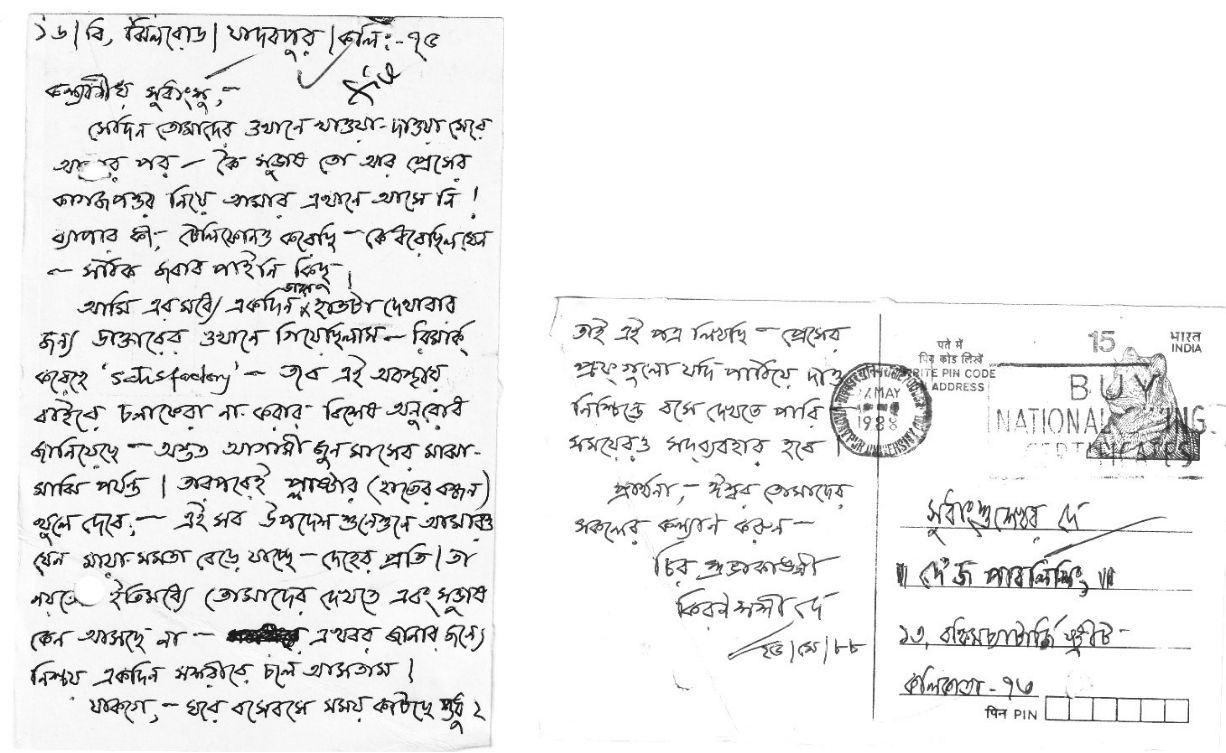 ১৬/বি, ঝিলরোড/যাদবপুর/কলি:-৭৫
কল্যাণীয় সুধাংশু,-
সেদিন তোমাদের ওখানে খাওয়া-দাওয়া সেরে
আসার পর — কৈ সুভাষ তো আর প্রেসের
কাগজপত্তর নিয়ে আমার এখানে আসে নি!
ব্যাপার কী;- টেলিফোনও করেছি — কে ধরেছিল যেন
— সঠিক জবাব পাইনি কিছু!
আমি এর মধ্যে একদিন ভাঙ্গা হাতটা দেখাবার
জন্য ডাক্তারের ওখানে গিয়েছিলাম — রিমার্ক
করেছে 'satisfactory' — তবে এই অবস্থায়
বাইরে চলাফেরা না-করার বিশেষ অনুরোধ
জানিয়েছে — অন্তত আগামী জুন মাসের মাঝা-
মাঝি পর্যন্ত। তারপরেই প্লাষ্টার (হাতের বন্ধন)
খুলে দেবে;- এই সব উপদেশ শুনেশুনে আমারও
যেন মায়া-মমতা বেড়ে যাচ্ছে — দেহের প্রতি। তা
নয়তো ইতিমধ্যে তোমাদের দেখতে এবং সুভাষ
কেন আসছে না — এখবর জানার জন্যে
নিশ্চয় একদিন সশরীরে চলে আসতাম।
যাকগে,- ঘরে বসেবসে সময় কাটছে শুধু
তাই এই পত্র লিখছি — প্রেসের
প্রুফ্ গুলো যদি পাঠিয়ে দাও
নিশ্চিন্তে বসে দেখতে পারি
সময়েরও সদ্ব্যবহার হবে।
প্রার্থনা,- ঈশ্বর তোমাদের
সকলের কল্যাণ করুন —
চির শুভাকাঙ্ক্ষী
কিরণশশী দে
/মে/৮৮
पते में
पिन कोड लिखें
WRITE PIN CODE
IN ADDRESS
15
भारत
INDIA
MAY
1988
JADAVPUR UNIVERSITY
BUY
NATIONAL SAVING
CERTIFICATES
সুধাংশুশেখর দে
॥ দে'জ পাবলিশিং ॥
১৩, বঙ্কিমচ্যাটার্জি স্ট্রীট-
কলিকাতা-৭৩
पिन PIN